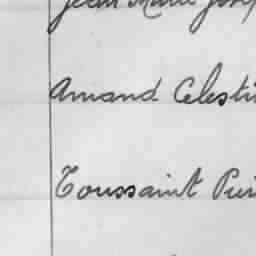 Jean Marie Josep
Amand Celesti
Toussaint Pui